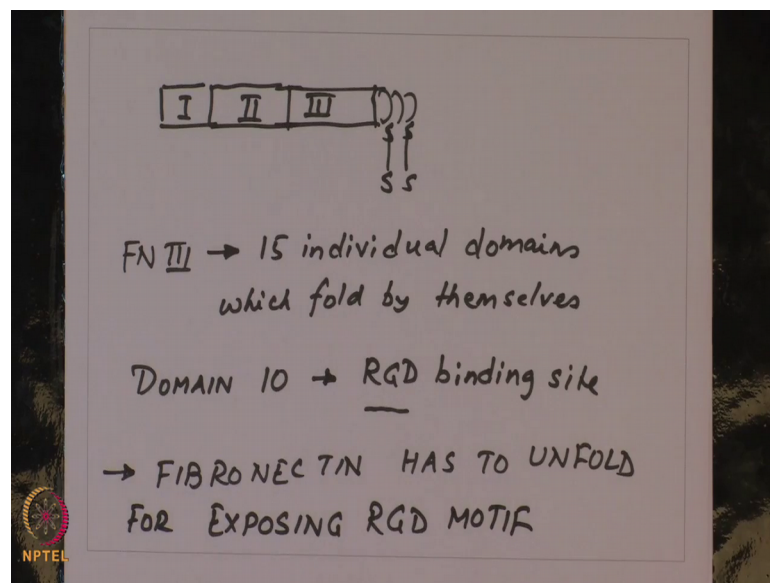 I II III
S S
S S
FN III → 15 individual domains
which fold by themselves
DOMAIN 10 → RGD binding site
→ FIBRONECTIN HAS TO UNFOLD
FOR EXPOSING RGD MOTIF
NPTEL